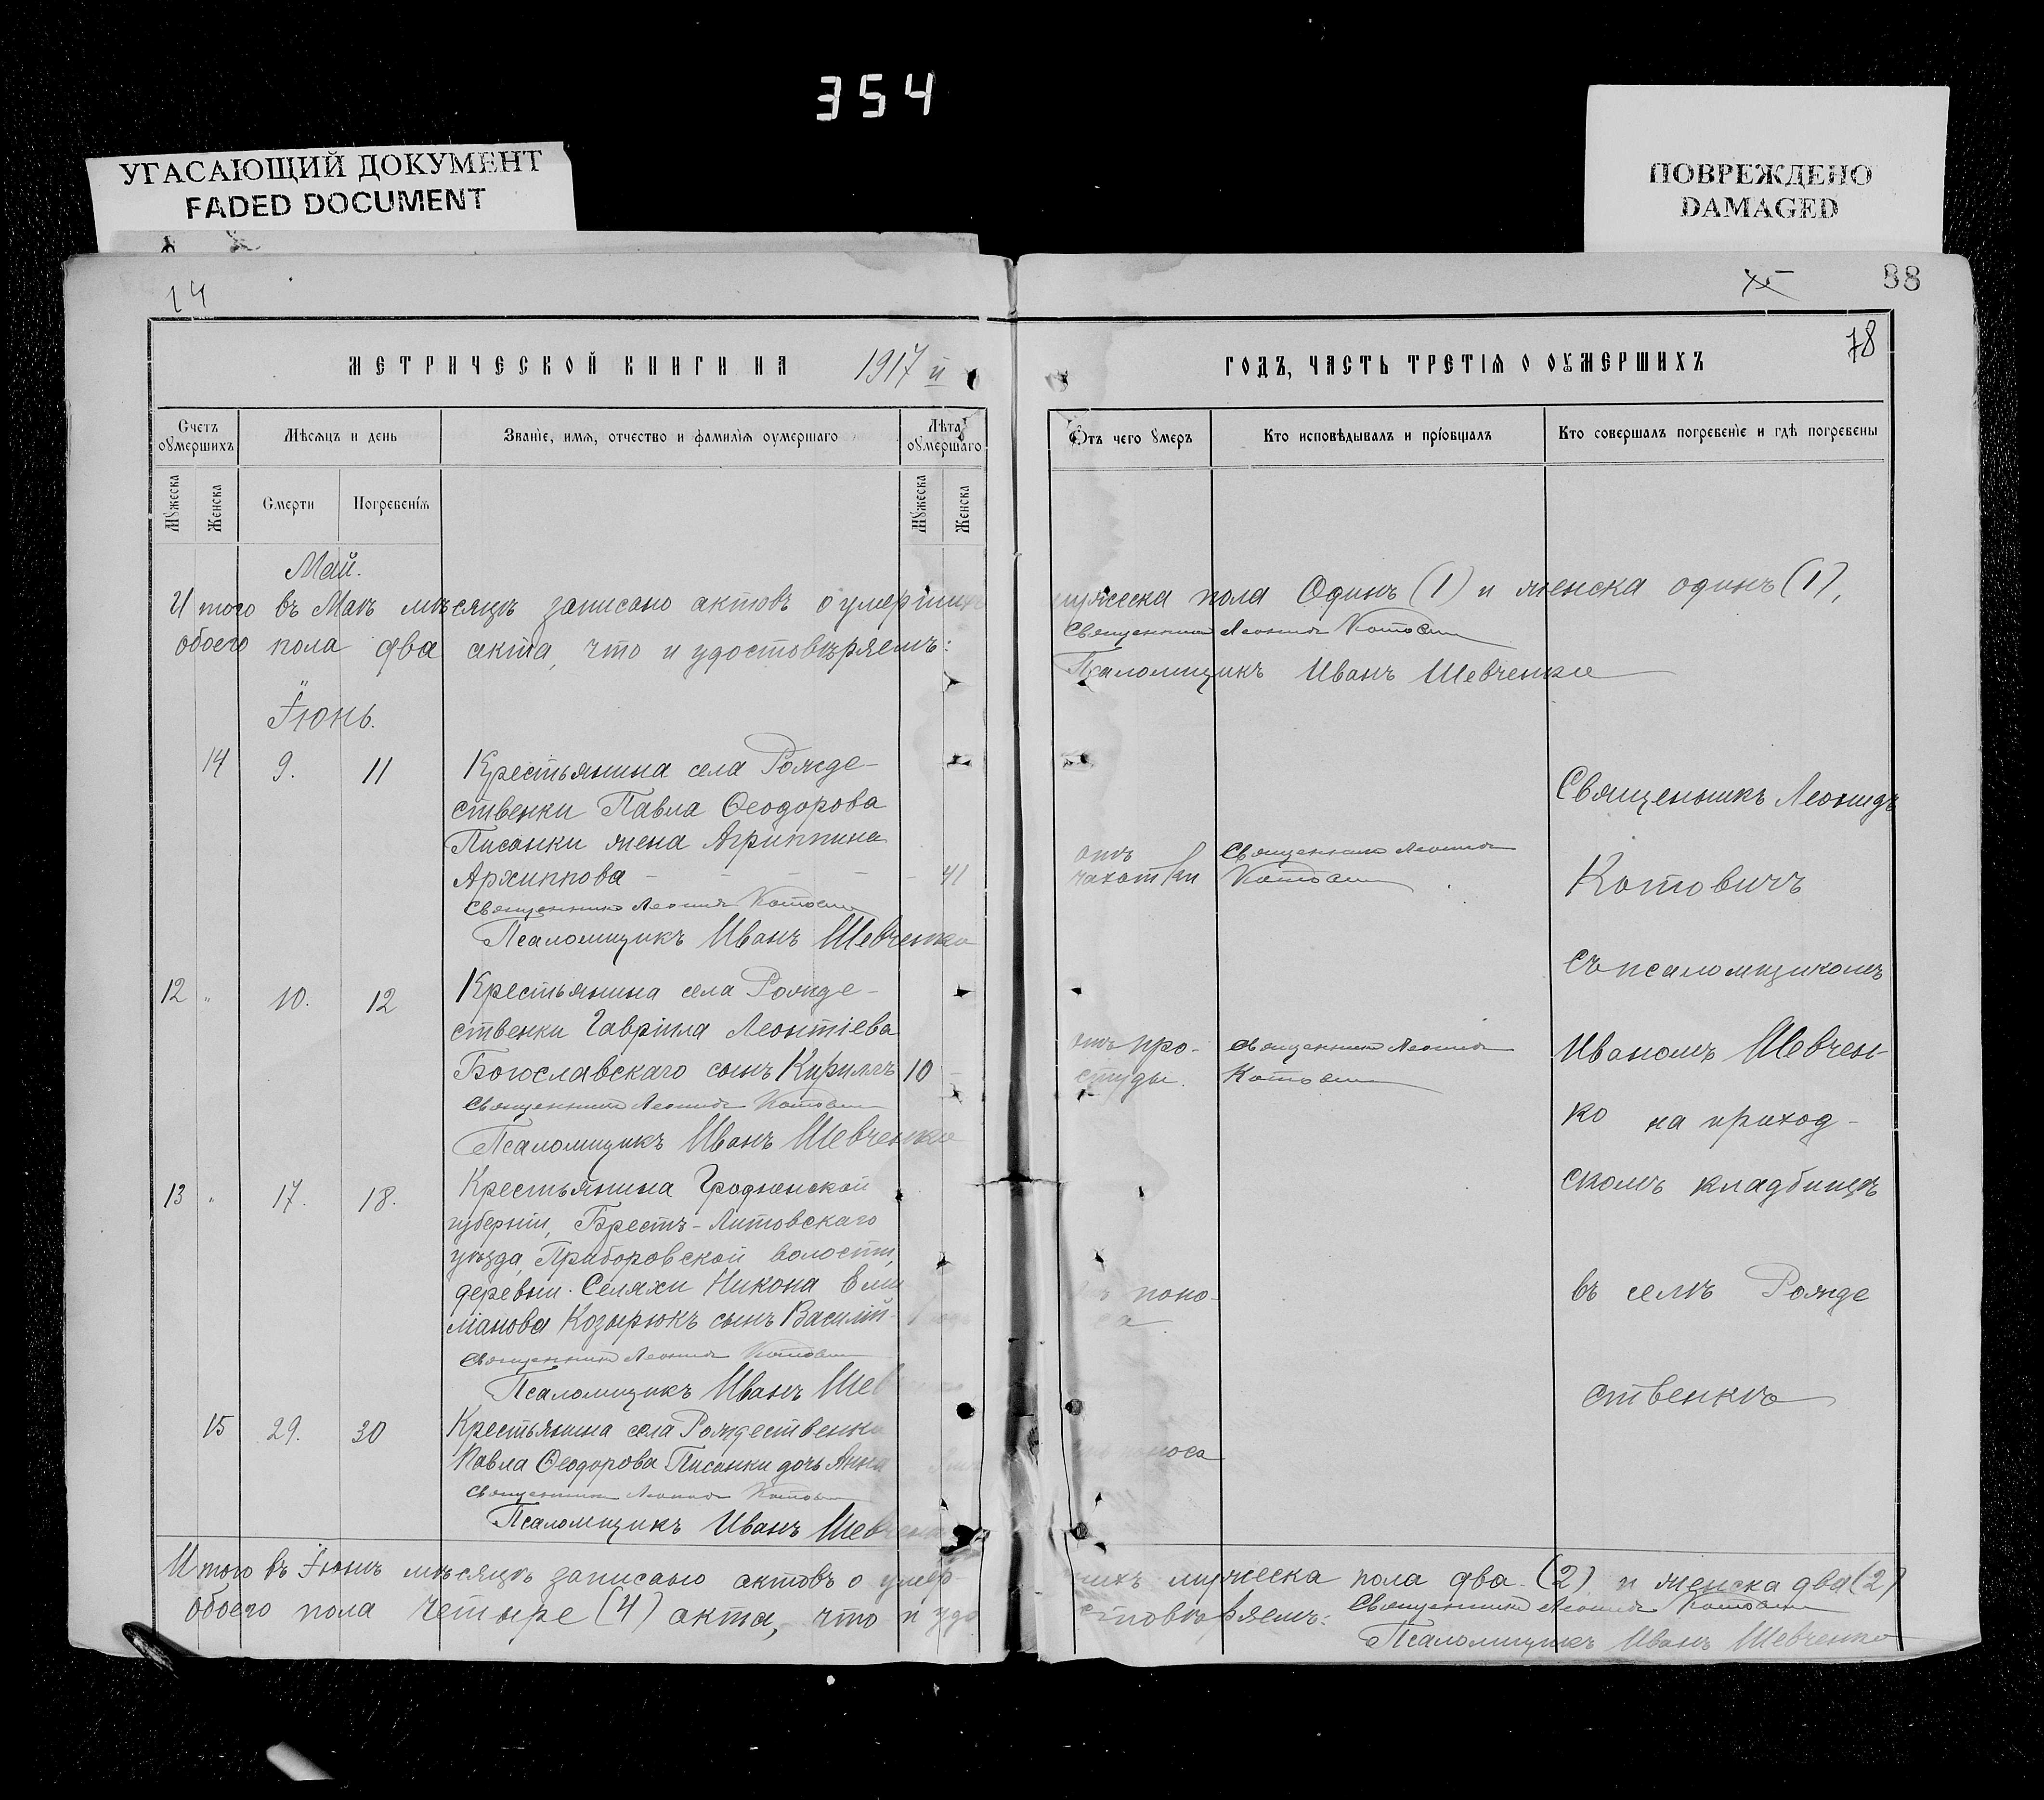 354
УГАСАЮЩИЙ ДОКУМЕНТ
FADED DOCUMENT
ПОВРЕЖДЕНО
DAMAGED
14
88
78
МЕТРИЧЕСКОЙ КНИГИ НА 1917 й
ГОДЪ, ЧАСТЬ ТРЕТІѦ О ОУМЕРШИХЪ
Счетъ оумершихъ
Мѣсяцъ и день
Званіе, имя, отчество и фамилія оумершаго
Лѣта оумершаго
Отъ чего умеръ
Кто исповѣдывалъ и пріобщалъ
Кто совершалъ погребеніе и гдѣ погребены
Мужеска
Женска
Смерти
Погребенія
Мужеска
Женска
Май.
Итого въ Маѣ мѣсяцѣ записано актовъ о умершихъ мужеска пола Одинъ (1) и женска одинъ (1),
обоего пола два акта, что и удостовѣряемъ:
Священникъ Леонидъ Котович
Псаломщикъ Иванъ Шевченко
Іюнь.
14 9. 11 Крестьянина села Рожде-
ственки Павла Ѳеодорова
Писанки жена Агриппина
Архиппова - - - - - 41
отъ чахотки
Священникъ Леонидъ
Котович
Священникъ Леонидъ Котович
Псаломщикъ Иванъ Шевченко
12 " 10. 12 Крестьянина села Рожде-
ственки Гавріила Леонтіева
Богославскаго сынъ Кириллъ 10 -
отъ про-
студы.
Священникъ Леонидъ
Котович
Священникъ Леонидъ Котович
Псаломщикъ Иванъ Шевченко
13 " 17. 18. Крестьянина Гродненской
губерніи, Брестъ-Литовскаго
уѣзда, Приборовской волости,
деревни Селяхи Никона Еми
ліанова Козырюкъ сынъ Василій-
поно-
са
Священникъ Леонидъ Котович
Псаломщикъ Иванъ Шев
15 29. 30 Крестьянина села Рождественки
Павла Ѳеодорова Писанки дочь Анна
поноса
Священникъ Леонидъ Котович
Псаломщикъ Иванъ Шевченко
Священникъ Леонидъ
Котовичъ
съ псаломщикомъ
Иваномъ Шевчен-
ко на приход-
скомъ кладбищѣ
въ селѣ Рожде
ственкѣ
Итого въ Іюнѣ мѣсяцѣ записано актовъ о умер-
шихъ мужеска пола два (2) и женска два (2)
обоего пола четыре (4) акта, что и удо
стовѣряемъ: Священникъ Леонидъ Котович
Псаломщикъ Иванъ Шевченко